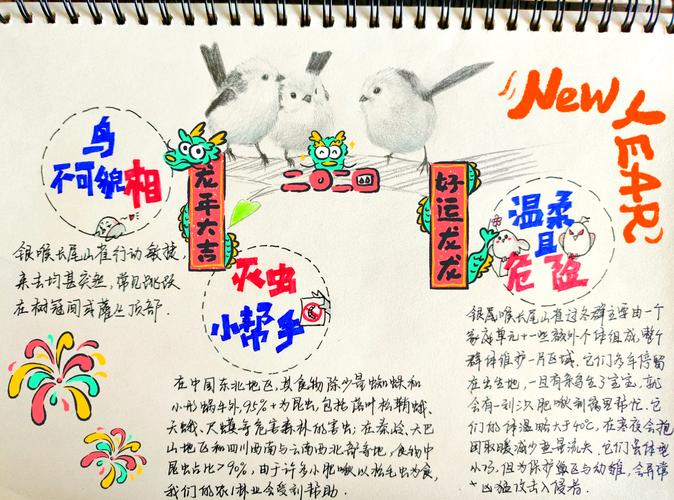 New YEAR
鸟
不可貌相
龙年大吉
二〇二四
好运龙龙
温柔
且
危险
灭虫
小帮手
银喉长尾山雀行动敏捷,
来去均甚突然,常见跳跃
在树冠间或灌丛顶部.
在中国东北地区,其食物除少量蜘蛛和
小形蜗牛外,95%+为昆虫,包括落叶松鞘蛾、
天蛾、尺蠖等危害森林的害虫;在秦岭、大巴
山地区和四川西南与云南西北部等地,食物中
昆虫占比>90%,由于许多小肥啾以松毛虫为食,
我们的农林业会受到帮助.
银喉长尾山雀过冬群主要由一个
家庭单元+一些额外个体组成,整个
群体维护一片区域.它们冬季停留
在出生地,一旦有亲鸟生了宝宝,就
会有别的肥啾到窝里帮忙.它
们的体温略大于40℃,在寒夜会抱
团取暖减少热量流失.它们虽体型
小巧,但为保护巢区与幼雏,会异常
凶猛攻击入侵者.